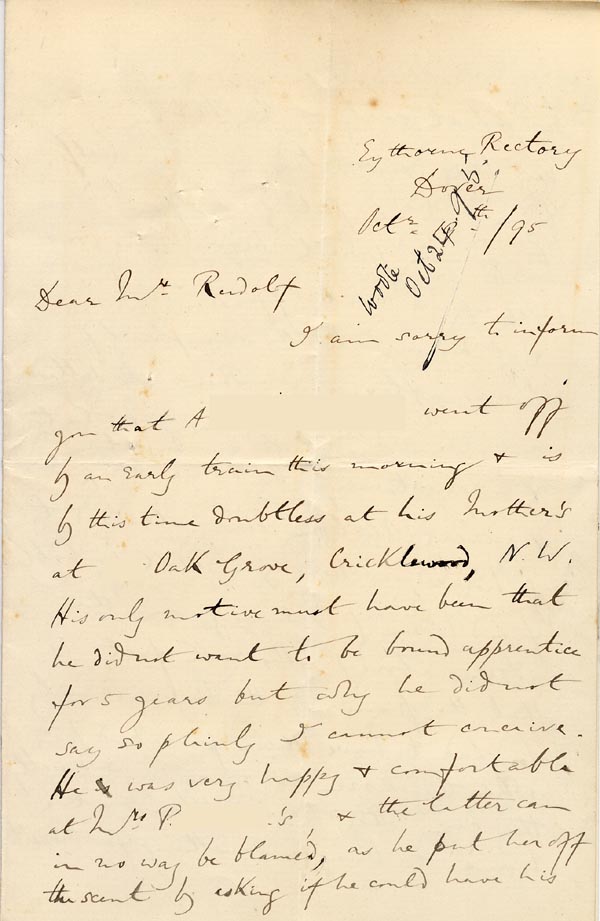 Eythorne Rectory
Dover
Octr. th/95
wrote
Oct 24 95.
Dear Mr. Rudolf
I am sorry to inform
you that A went off
by an early train this morning & is
by this time doubtless at his Mother's
at Oak Grove, Cricklewood, N.W.
His only motive must have been that
he did not want to be bound apprentice
for 5 years but why he did not
say so plainly I cannot conceive.
He was very happy & comfortable
at Mrs P. 's & the latter can
in no way be blamed, as he put her off
the scent by asking if he could have his